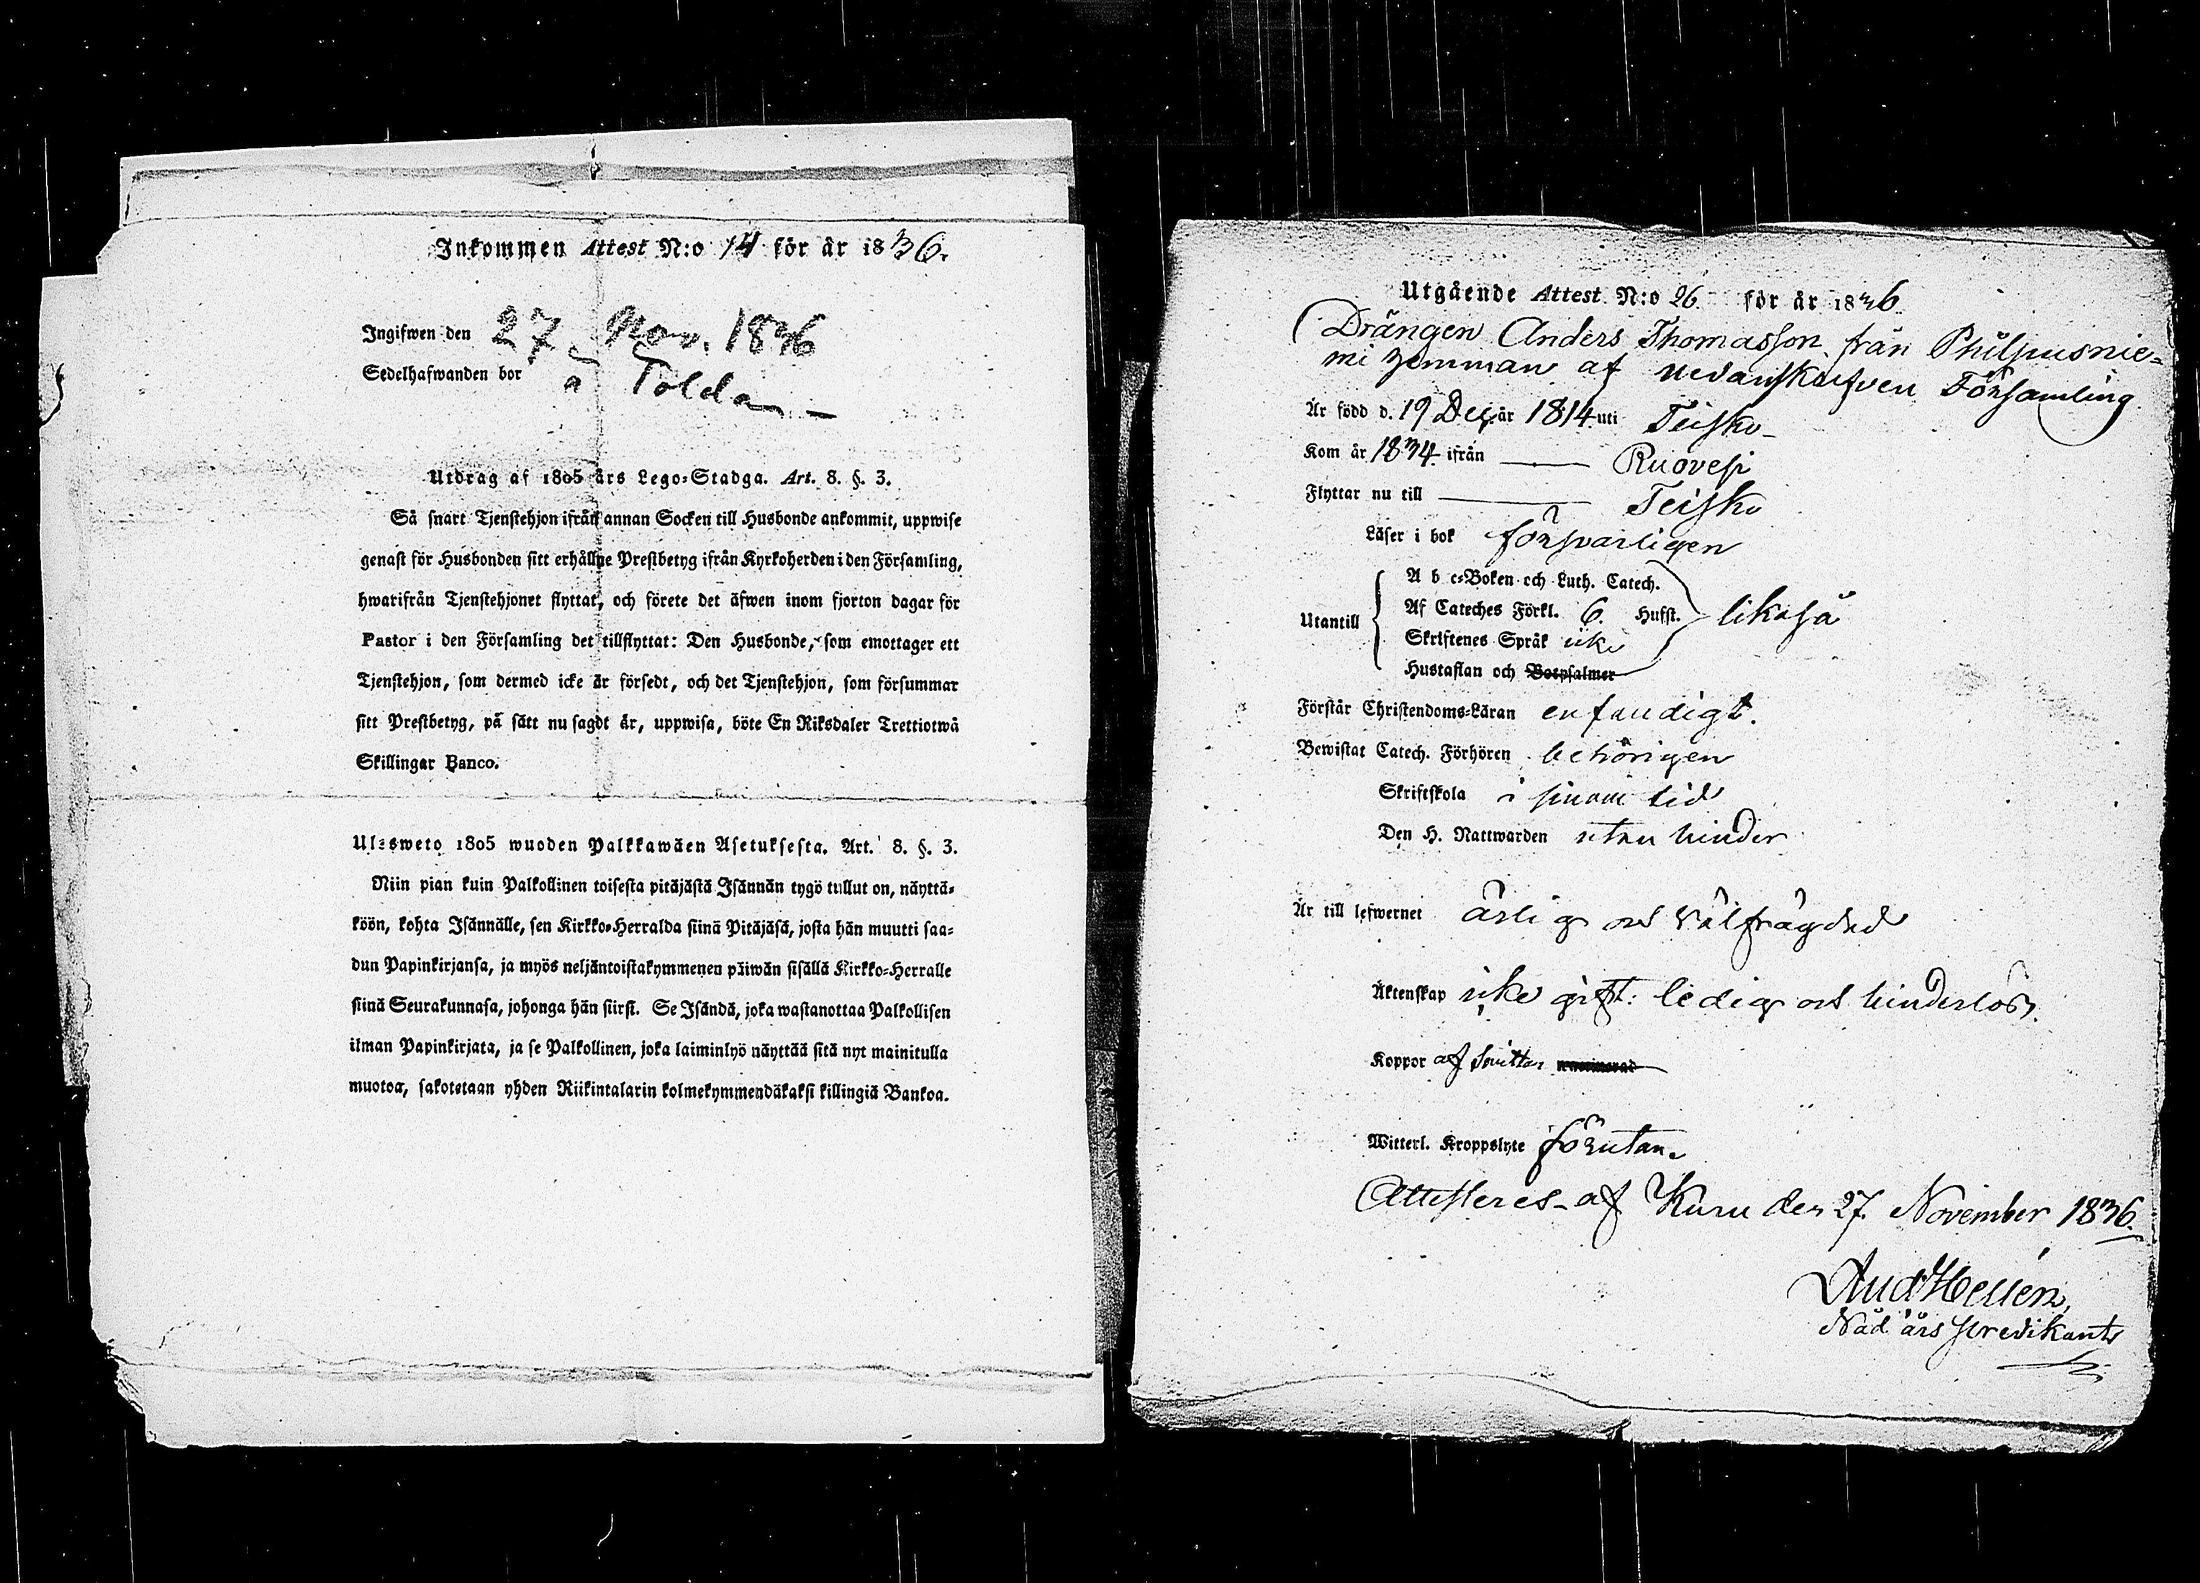 Inkommen Attest N:o 14 för år 1836.
Ingifwen den 27 Nov. 1836
Sedelhafwanden bor å Tolda
Utdrag af 1805 års Lego-Stadga. Art. 8. §. 3.
Så snart Tjenstehjon ifrån annan Socken till Husbonde ankommit, uppwise
genast för Husbonden sitt erhållne Prestbetyg ifrån Kyrkoherden i den Församling,
hwarifrån Tjenstehjonet flyttat, och förete det äfwen inom fjorton dagar för
Pastor i den Församling det tillflyttat: Den Husbonde, som emottager ett
Tjenstehjon, som dermed icke är försedt, och det Tjenstehjon, som försummar
sitt Prestbetyg, på sätt nu sagdt är, uppwisa, böte En Riksdaler Trettiotwå
Skillingar Banco.
Ulosweto 1805 wuoden Palkkawäen Asetuksesta. Art. 8. §. 3.
Niin pian kuin Palkollinen toisesta pitäjästä Isännän tygö tullut on, näyttä-
köön, kohta Isännälle, sen Kirkko-Herralda siinä Pitäjäsä, josta hän muutti saa-
dun Papinkirjansa, ja myös neljäntoistakymmenen päiwän sisällä Kirkko-Herralle
siinä Seurakunnasa, johonga hän siirsi. Se Isändä, joka wastanottaa Palkollisen
ilman Papinkirjata, ja se Palkollinen, joka laiminlyö näyttää sitä nyt mainitulla
muotoa, sakotetaan yhden Riikintalarin kolmekymmendäkaksi killingiä Bankoa.
Utgående Attest N:o 26 för år 1836
Drängen Anders Thomasson från Philpusnie-
mi hemman af nedanskrefven Församling
Är född d. 19 Dec. år 1814 uti Teisko
Kom år 1834 ifrån Ruovesi
Flyttar nu till Teisko
Läser i bok försvarligen
A b c-Boken och Luth. Catech.
Utantill Af Cateches Förkl. 6. Hufst. likaså
Skriftenes Språk icke
Hustaflan och Botpsalmer
Förstår Christendoms-Läran enfaldigt.
Bewistat Catech. Förhören behörigen
Skriftskola i sinom tid
Den H. Nattwarden utan hinder
Är till lefwernet ärlig och välfrägdad
Äktenskap icke gift: ledig och hinderlös.
Koppor af smittan vaccinerad
Witterl. Kroppslyte förutan.
Attesteres af Kuru den 27. November 1836.
And Hellén,
Nåd års predikant